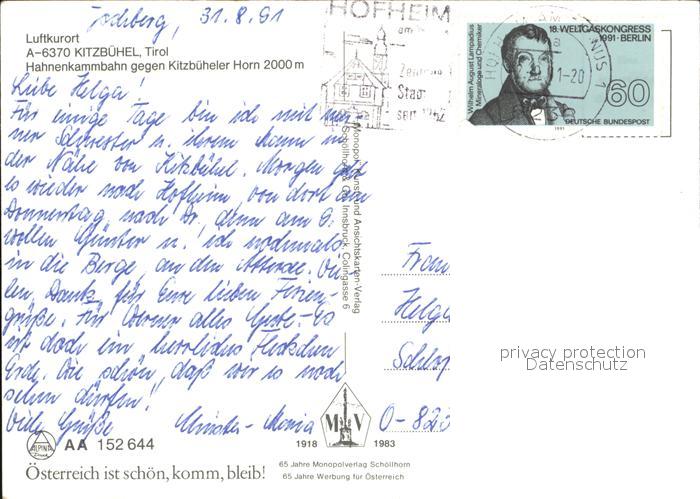 Jochberg, 31.8.91
Luftkurort
A-6370 KITZBÜHEL, Tirol
Hahnenkammbahn gegen Kitzbüheler Horn 2000 m
Liebe Helga!
Für einige Tage bin ich mit mei-
ner Schwester u. ihrem Mann in
der Nähe von Kitzbühel. Morgen geht
es wieder nach Hofheim, von dort am
Donnerstag nach Dr., denn am 6.
wollen Günter u. ich nochmals
in die Berge, an den Attersee. Vie-
len Dank für Eure lieben Ferien-
grüße. Für Werner alles Gute. - Es
ist doch ein herrliches Fleckchen
Erde. Wie schön, daß wir es noch
sehen dürfen!
Viele Grüße
HOFHEIM
am
Stadt
seit 1352
Wilhelm August Lampadius
Mineraloge und Chemiker
18. WELTGASKONGRESS
1991 · BERLIN
60
DEUTSCHE BUNDESPOST
1991
-20
Monopol, Kunst und Ansichtskarten-Verlag
Schöllhorn & Co., Innsbruck, Colingasse 6
Frau
Helga
O-820
privacy protection
Datenschutz
M V
1918 1983
65 Jahre Monopolverlag Schöllhorn
65 Jahre Werbung für Österreich
ALPINA
AA 152 644
Österreich ist schön, komm, bleib!